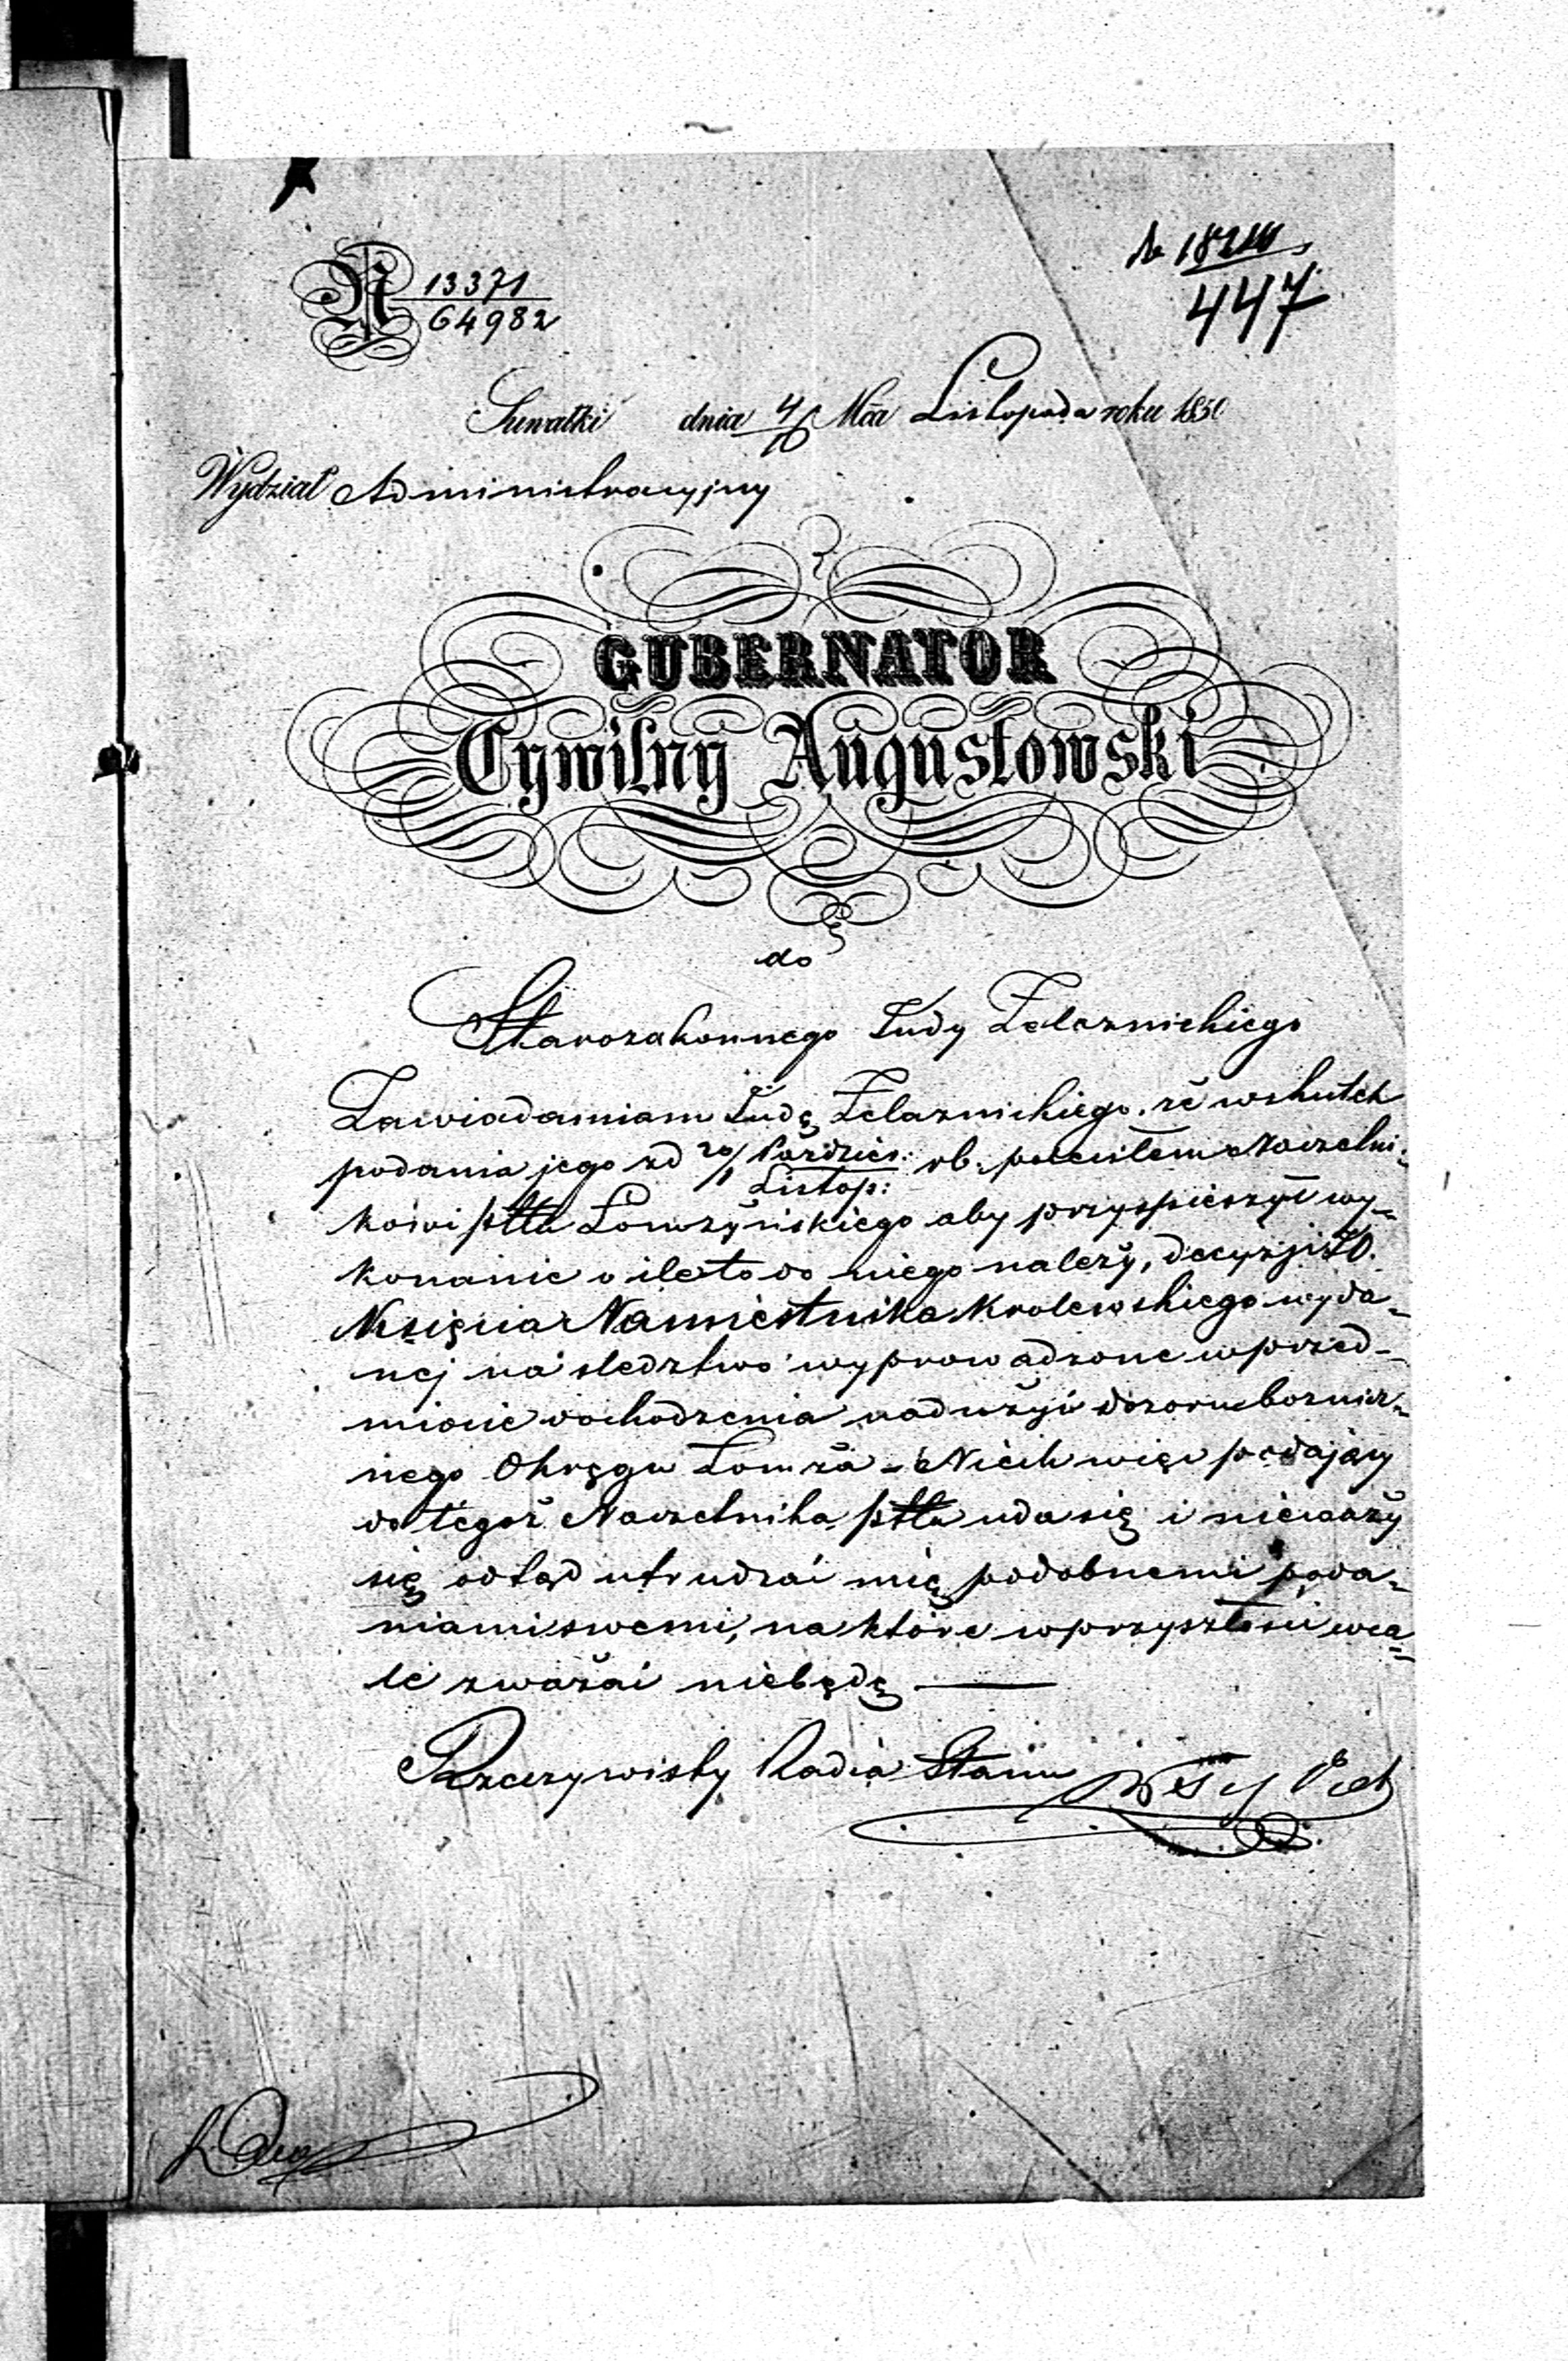 N 13371
64982
447
Suwałki dnia 4/16 Mca Listopada roku 1850
Wydział Administracyjny
GUBERNATOR
Cywilny Augustowski
do
Starozakonnego Judy Zelaznickiego
Zawiadamiam Judę Zelaznickiego, że wskutek
podania jego zd 20/1 Paździer: Listop: rb. poleciłem Naczelni-
kowi pttu Łomżyńskiego aby przyspieszył wy-
konanie o ile to do niego należy, decyzji JO.
Księcia Namiestnika Krolewskiego wyda-
nej na sledztwo wyprowadzone w przed-
miocie dochodzenia nadużyć dozoru bożnicz-
nego Okręgu Łomża - Niech więc podający
do tegoż Naczelnika pttu uda się i nieważy
się odtąd utrudzać mię podobnemi poda-
niami swemi, na które w przyszłości wca-
le zważać niebędę
Rzeczywisty Radca Stanu